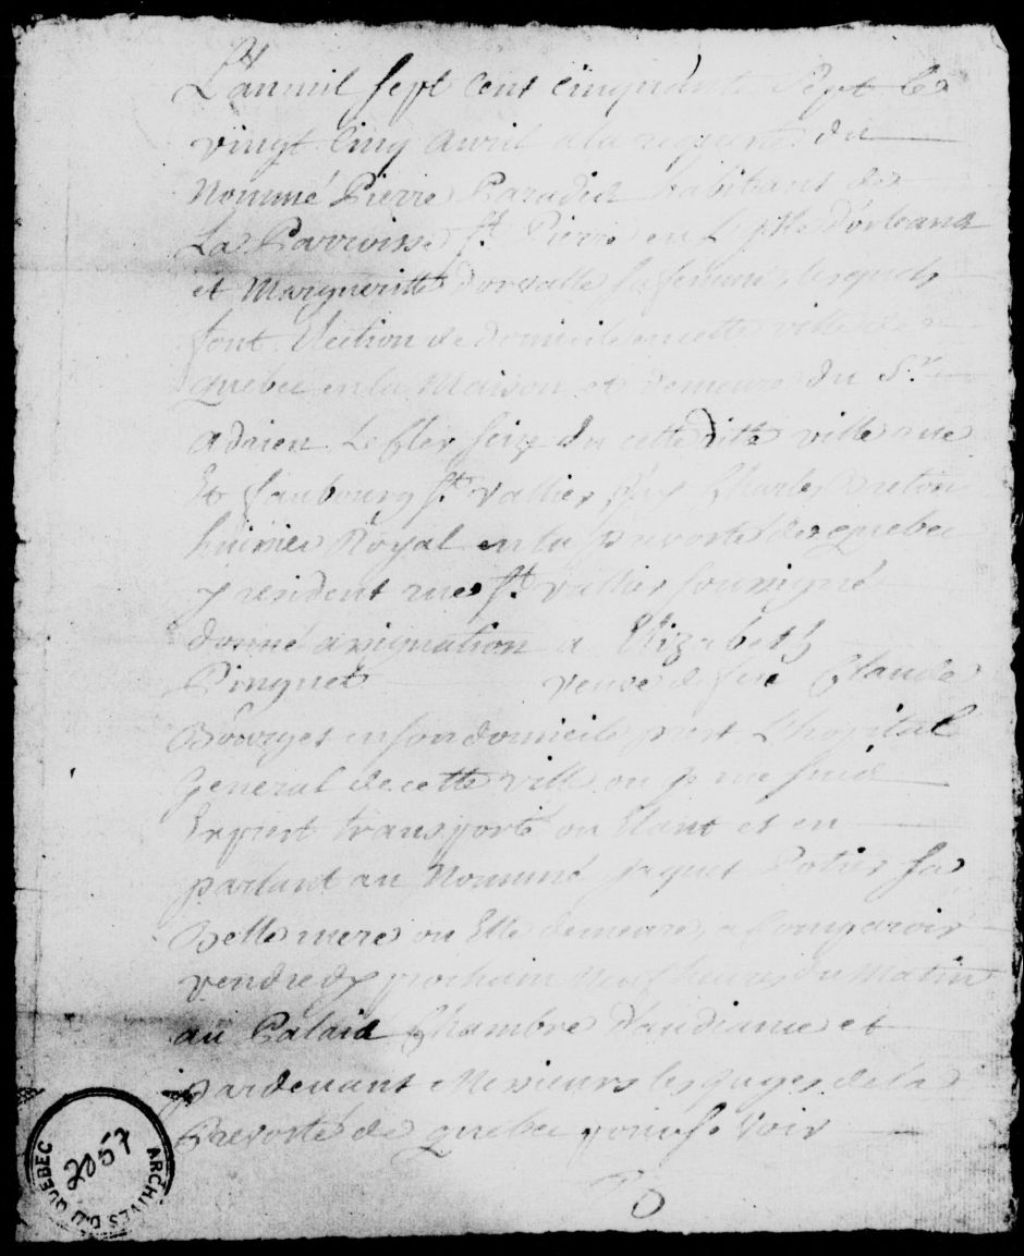 L'an mil sept cent cinquante sept le
vingt cinq avril a la requete du
Nommé Pierre Paradis habitant de
La Parroisse St. Pierre en L'isle d'orleans
et Margueritte Dorvalle sa femme, lesquels
font Election de domicile en cette ville de
quebec en la Maison et demeure du Sr.
adrien Le Cler size du cette ditte ville rue
Et faubourg St. vallier, Charles Breton
huissier Royal en la prevosté de Quebec
y resident rue St. vallier soussigné
donné assignation a Elizabeth
Pinguet veuve de feu Claude
Bourget en son domicile prest L'hopital
General de cette ville ou Je me suis
Exprest transporté ou Etant et en
parlant au Nommé jaques Potier sa
Belle mere ou Elle demeure, a Comparoir
vendredy prochain Neuf heures du Matin
au Palais Chambre d'audiance et
pardevant Messieurs les Juges de la
Prevosté de quebec pour se Voir
ARCHIVES DU QUEBEC
2057